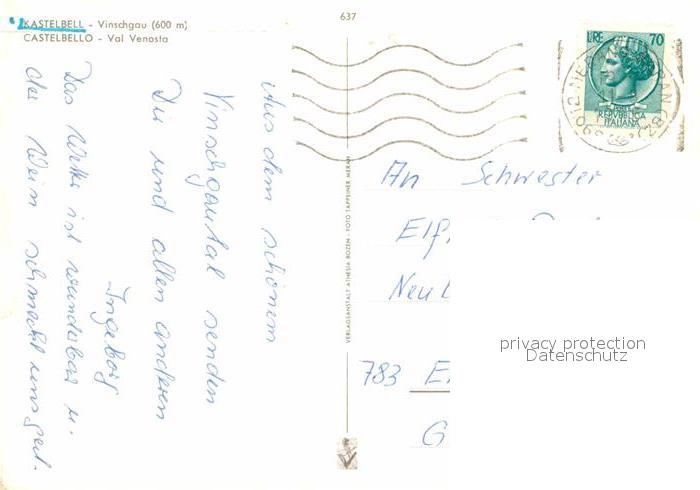 KASTELBELL - Vinschgau (600 m)
CASTELBELLO - Val Venosta
637
LIRE 70
REPUBBLICA
ITALIANA
Aus dem schönen
Vinschgautal senden
Dir und allen anderen
Ingeborg
Das Wetter ist wunderbar u.
der Wein schmeckt uns gut.
VERLAGSANSTALT ATHESIA BOZEN - FOTO TAPPEINER MERAN
An Schwester
Elf
Neu
783 E
G
privacy protection
Datenschutz